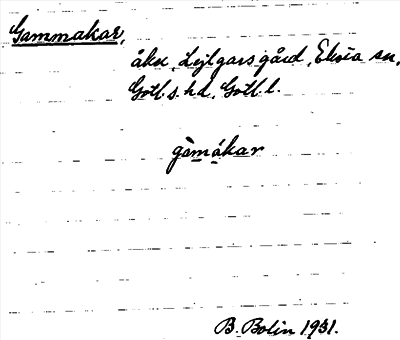 Gammakar,
åkr, Lejlgars gård, Eksta sn,
Gotl. s. hd, Gotl. l.
gàmákar
B. Bolin 1931.